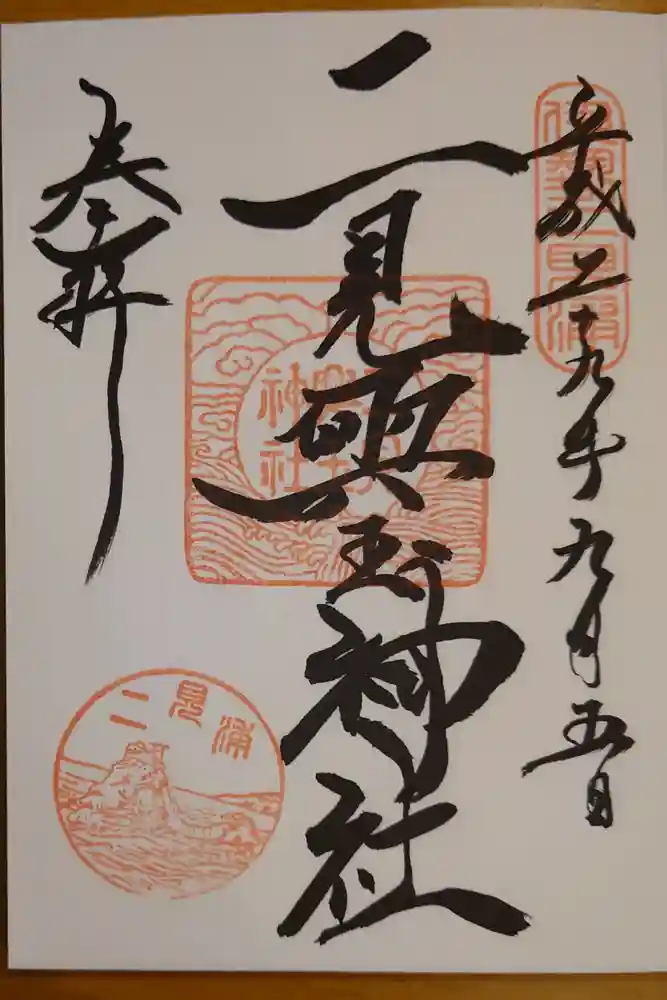 平成二十九年九月五日
伊勢二見浦
二見興玉神社
奉拝
二見浦